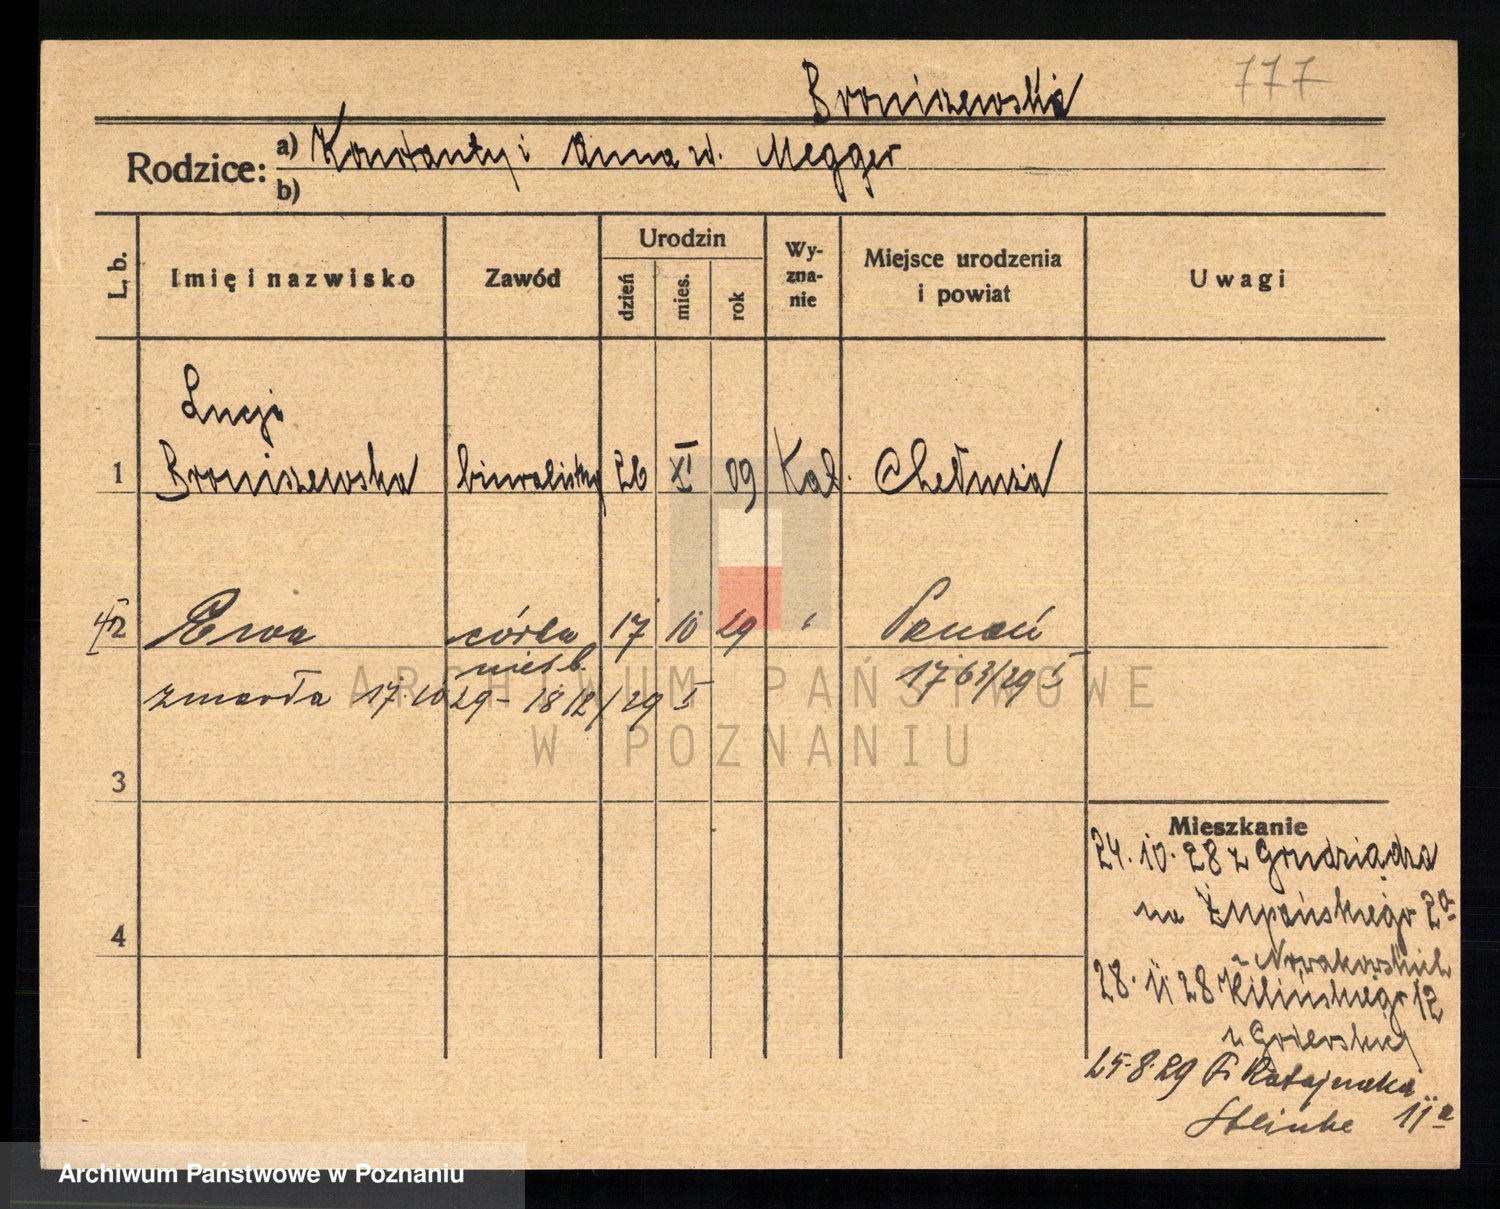 Broniszewska 777
Rodzice: a) Konstanty i Anna ur. Megger
b)
L. b. Imię i nazwisko Zawód Urodzin dzień mies. rok Wy-zna-nie Miejsce urodzenia i powiat Uwagi
Lucja
1 Broniszewska biuralistka 26 XI 09 Kat. Chełmża
2 Ewa córka 17 10 29 " Poznań
nieśl. 1763/29 I
zmarła 17.10 29 - 1812/29 I
ARCHIWUM PAŃSTWOWE
W POZNANIU
3
4
Mieszkanie
24. 10. 28 z Grudziądza
na Żupańskiego 2a
u Nowakowskich
28. 11 28 Kilińskiego 12
u
25.8.29 Fr Ratajczaka
11a
Archiwum Państwowe w Poznaniu